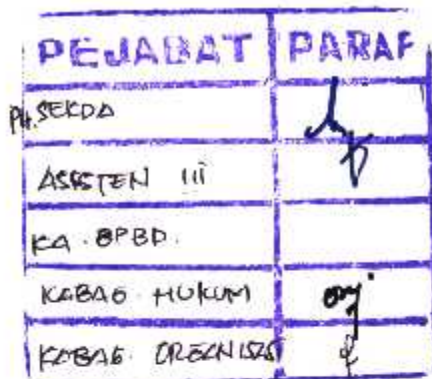 PEJABAT PARAF
PH. SEKDA
ASISTEN III
KA. BPBD.
KABAG HUKUM
KABAG. ORGANISASI